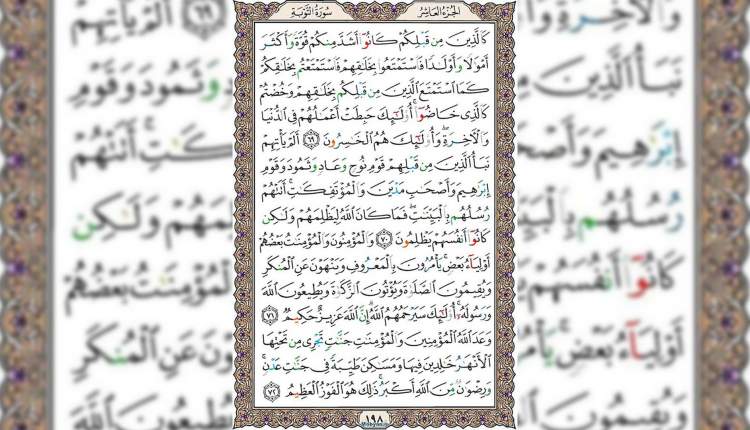 الجزء العاشر سورة التوبة
كَالَّذِينَ مِن قَبْلِكُمْ كَانُوٓا۟ أَشَدَّ مِنكُمْ قُوَّةً وَأَكْثَرَ
أَمْوَٰلًا وَأَوْلَٰدًا فَٱسْتَمْتَعُوا۟ بِخَلَٰقِهِمْ فَٱسْتَمْتَعْتُم بِخَلَٰقِكُمْ
كَمَا ٱسْتَمْتَعَ ٱلَّذِينَ مِن قَبْلِكُم بِخَلَٰقِهِمْ وَخُضْتُمْ
كَٱلَّذِى خَاضُوٓا۟ أُو۟لَٰٓئِكَ حَبِطَتْ أَعْمَٰلُهُمْ فِى ٱلدُّنْيَا
وَٱلْءَاخِرَةِ وَأُو۟لَٰٓئِكَ هُمُ ٱلْخَٰسِرُونَ ٦٩ أَلَمْ يَأْتِهِمْ
نَبَأُ ٱلَّذِينَ مِن قَبْلِهِمْ قَوْمِ نُوحٍ وَعَادٍ وَثَمُودَ وَقَوْمِ
إِبْرَٰهِيمَ وَأَصْحَٰبِ مَدْيَنَ وَٱلْمُؤْتَفِكَٰتِ أَتَتْهُمْ
رُسُلُهُم بِٱلْبَيِّنَٰتِ فَمَا كَانَ ٱللَّهُ لِيَظْلِمَهُمْ وَلَٰكِن
كَانُوٓا۟ أَنفُسَهُمْ يَظْلِمُونَ ٧٠ وَٱلْمُؤْمِنُونَ وَٱلْمُؤْمِنَٰتُ بَعْضُهُمْ
أَوْلِيَآءُ بَعْضٍ يَأْمُرُونَ بِٱلْمَعْرُوفِ وَيَنْهَوْنَ عَنِ ٱلْمُنكَرِ
وَيُقِيمُونَ ٱلصَّلَوٰةَ وَيُؤْتُونَ ٱلزَّكَوٰةَ وَيُطِيعُونَ ٱللَّهَ
وَرَسُولَهُۥٓ أُو۟لَٰٓئِكَ سَيَرْحَمُهُمُ ٱللَّهُ إِنَّ ٱللَّهَ عَزِيزٌ حَكِيمٌ ٧١
وَعَدَ ٱللَّهُ ٱلْمُؤْمِنِينَ وَٱلْمُؤْمِنَٰتِ جَنَّٰتٍ تَجْرِى مِن تَحْتِهَا
ٱلْأَنْهَٰرُ خَٰلِدِينَ فِيهَا وَمَسَٰكِنَ طَيِّبَةً فِى جَنَّٰتِ عَدْنٍ
وَرِضْوَٰنٌ مِّنَ ٱللَّهِ أَكْبَرُ ذَٰلِكَ هُوَ ٱلْفَوْزُ ٱلْعَظِيمُ ٧٢
١٩٨